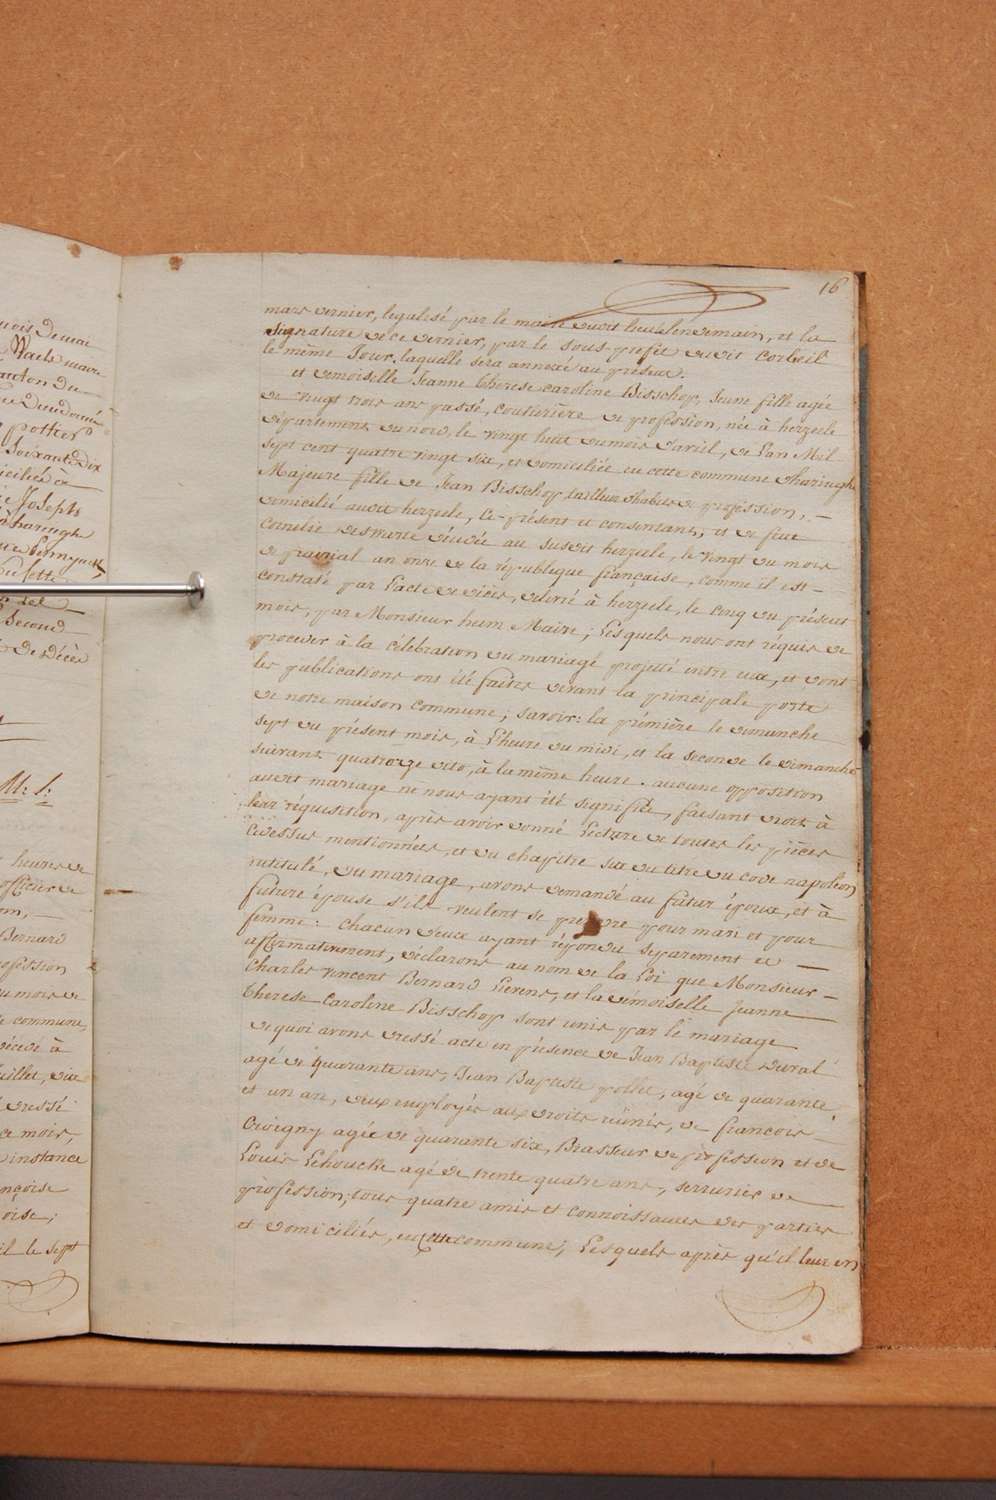 uois Demai
Waele maire
canton du
potter
soixante dix
iciliée à
e Joseph
haringh
cette
second
De Décès
M: S:
heures de
officier de
om,
Bernard
rofession
u mois de
e commune,
décédé à
uillet, dix
dressé
ce mois,
instance
ançoise
oise;
il le sept
16
mars dernier, legalisé par le maire dudit lieu le lendemain, et la
signature de ce dernier, par le sous-prefet dudit Corbeil
le même Jour, laquelle sera annexée au présent.
et demoiselle Jeanne therese caroline Bisschop, Jeune fille agée
de vingt trois ans passé, couturière de profession, née à herzeele
département du nord, le vingt huit du mois d'avril, de L'an Mil
sept cent quatre vingt six, et domiciliée en cette commune d'haringhe
Majeure fille de Jean Bisschop, tailleur d'habits de profession, –
domicilié audit herzeele, ce-présent et consentant, et de feue
Cornelie desmette décédée au susdit herzeele, le vingt du mois
de prairial an onze de la république française, comme il est –
constaté par L'acte de décès, délivré à herzeele, le cinq du présent
mois, par Monsieur heim Maire; Lesquels nous ont réquis de
proceder à la célébration du mariage projetté entre eux, et dont
les publications ont été faites devant la principale porte
de notre maison commune; savoir: la première le dimanche
sept du présent mois, à L'heure du midi, et la seconde le dimanche
suivant quatorze dito, à la même heure. aucune opposition
audit mariage ne nous ayant été signifiée, faisant droit à
leur réquisition, après avoir donné Lecture de toutes les pièces
cidessus mentionnées, et du chapitre six du titre du code napoléon
intitulé, du mariage, avons demandé au futur époux, et à
future épouse s'ils veulent se prendre pour mari et pour
femme: chacun d'eux ayant répondu séparement et –
affirmativement, déclarons au nom de la Loi que Monsieur –
Charles Vincent Bernard Lierens, et la démoiselle Jeanne
therese Caroline Bisschop sont unis par le mariage
de quoi avons dressé acte en présence de Jean Baptiste duval
agé de quarante ans, Jean Baptiste pollet, agé de quarante
et un an, deux employés aux droits réunis, de françois –
Croigny agée de quarante six, Brasseur de profession et de
Louis Lehoucke agé de trente quatre ans, serrurier de
profession; tous quatre amis et connoissances des parties
et domiciliés, en cette commune; Lesquels après qu'il leur en